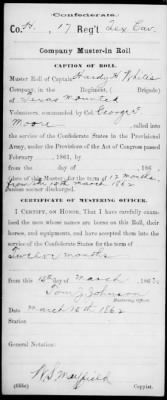 Confederate.
Co. H, 17 Reg't Tex Cav.
Company Muster-in Roll
CAPTION OF ROLL.
Muster Roll of Captain Hardy H. Whiles
Company, in the Regiment, ( Brigade)
of Texas Mounted
Volunteers, commanded by Col. George F
Moore, called into
the service of the Confederate States in the Provisional
Army, under the Provisions of the Act of Congress passed
February , 1861, by
from the day of , 186
(date of this Muster) for the term of 12 months
from the 15th March 1862
unless sooner discharged.
CERTIFICATE OF MUSTERING OFFICER.
I CERTIFY, ON HONOR, That I have carefully exam-
ined the men whose names are borne on this Roll, their
horses, and equipments, and have accepted them into the
service of the Confederate States for the term of
Twelve months
from this 15th day of March , 1862.
Tom J Johnson
Mustering Officer.
Date March 15th 1862
Station
General Notation:
W S Mayfield
Copyist.